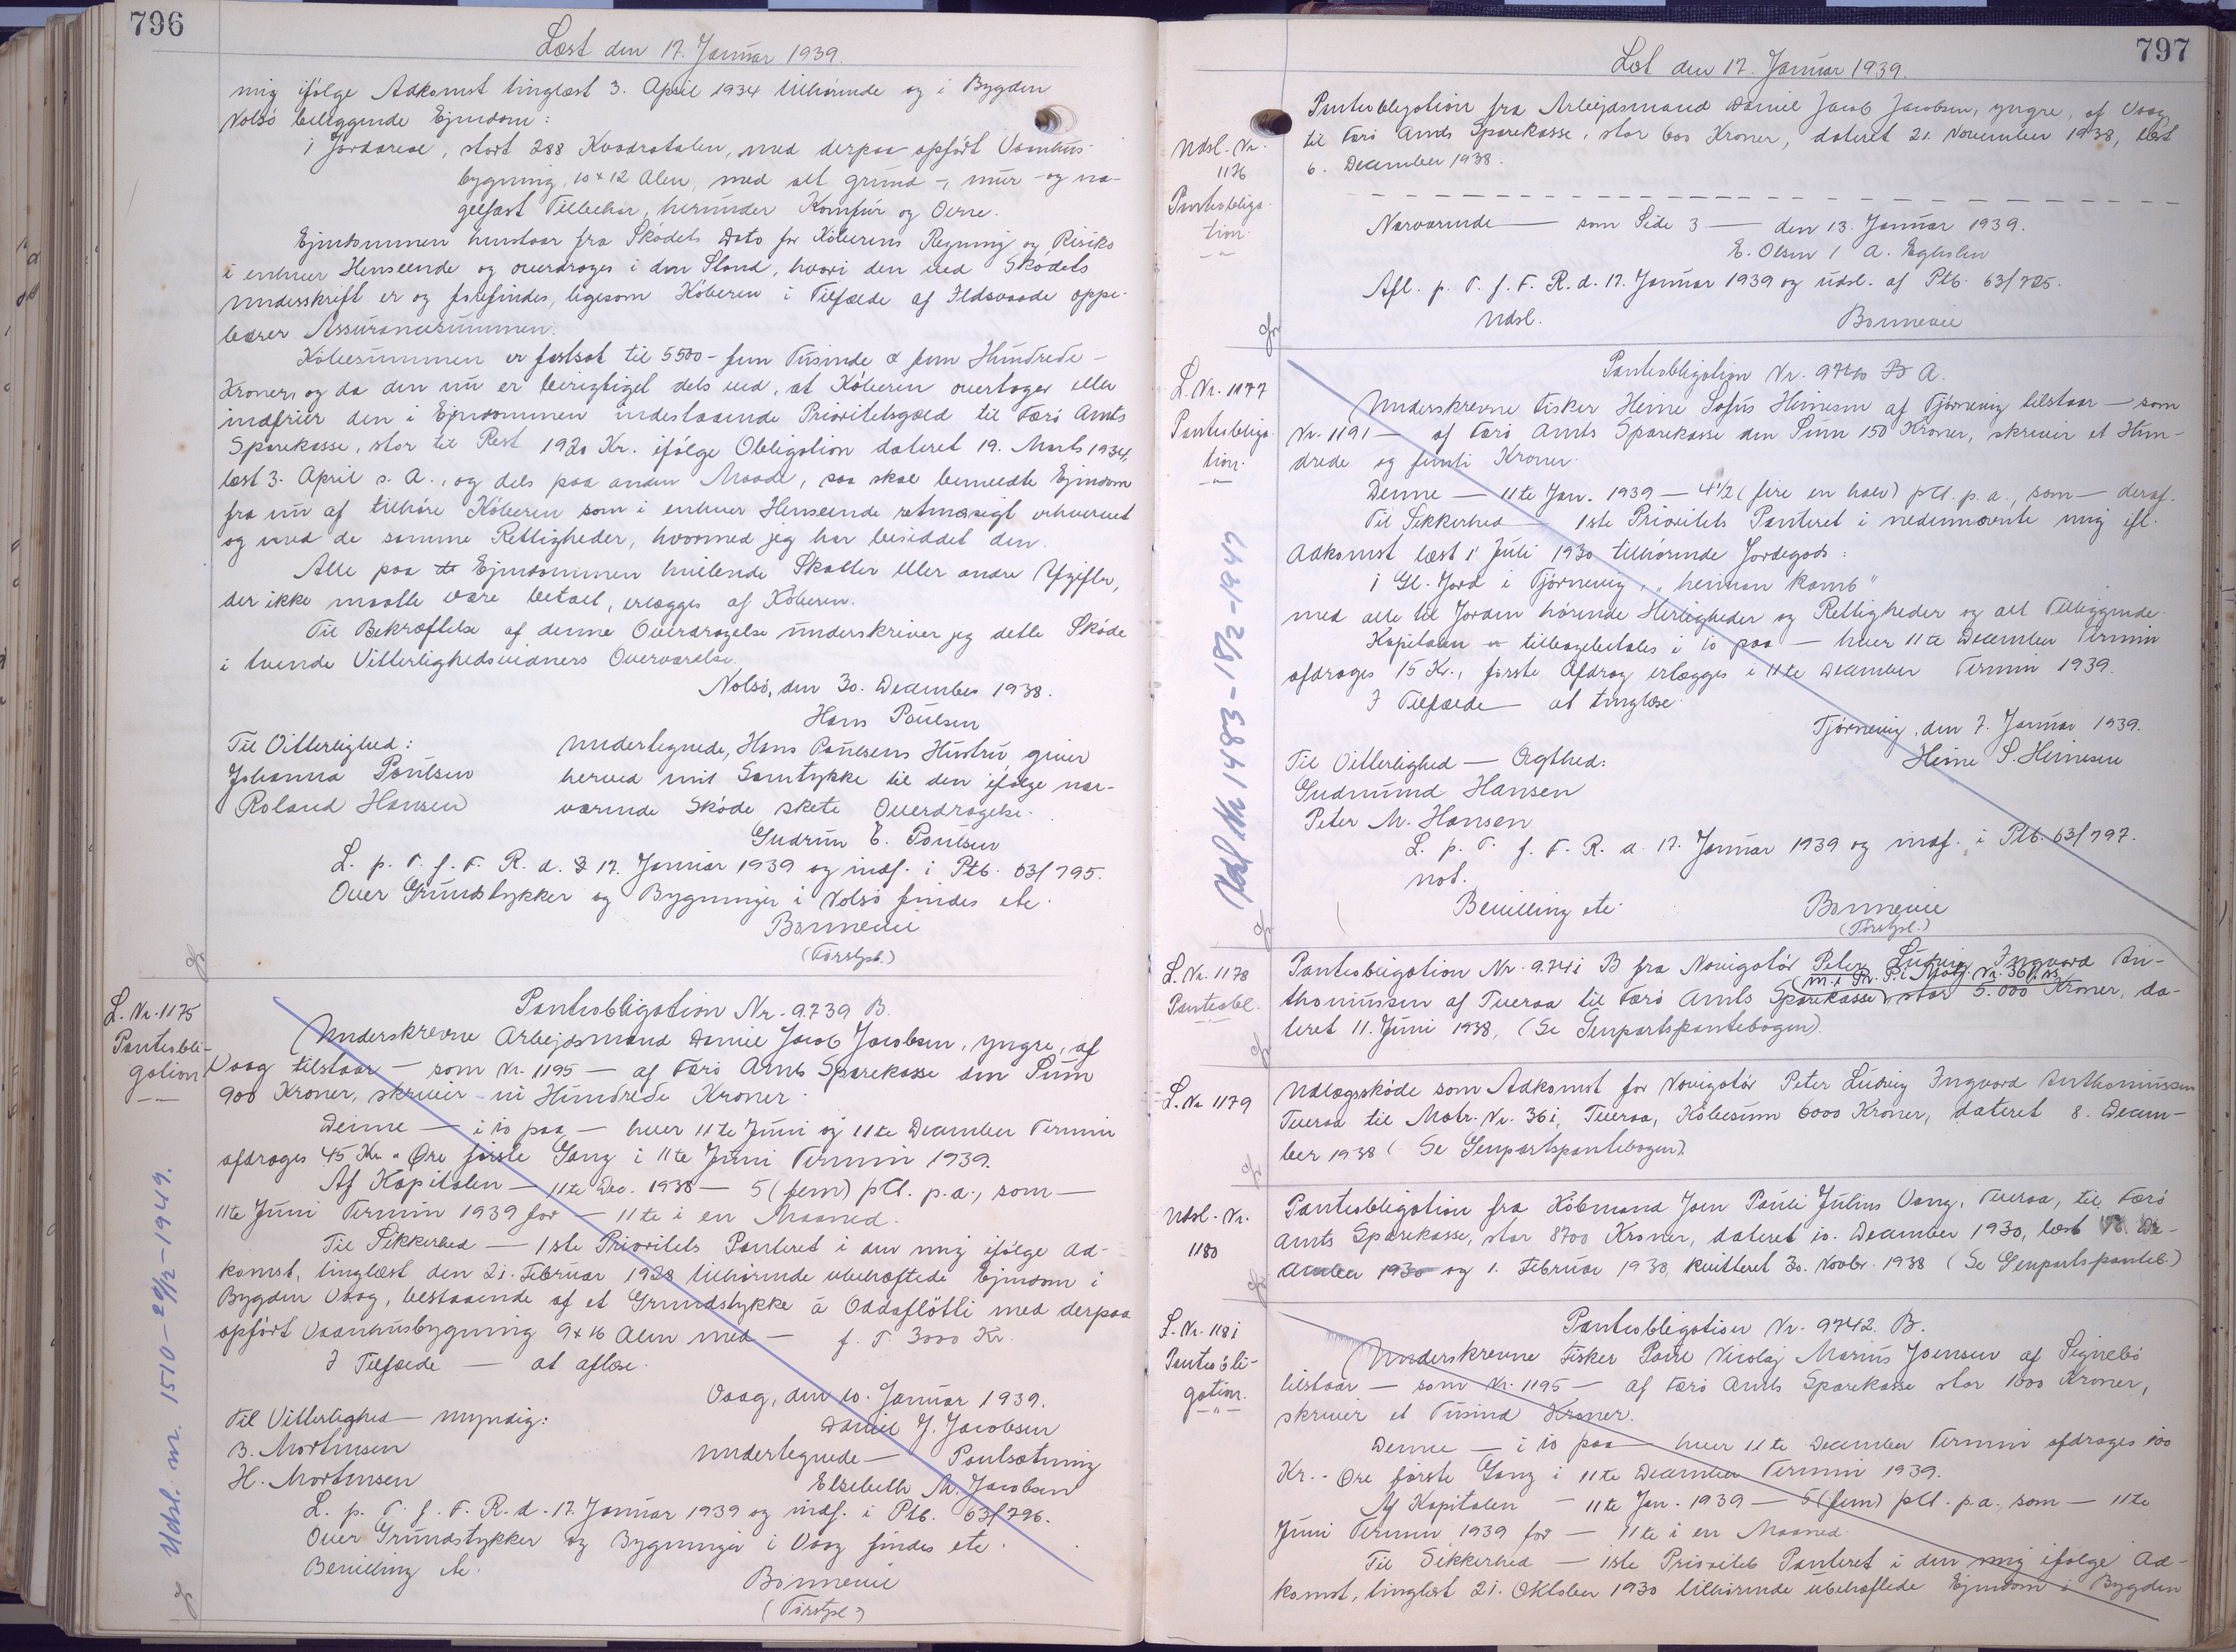 796
Læst den 17. Januar 1939.
mig ifølge Adkomst tinglæst 3. April 1934 tilhørende og i Bygden
Nolsø beliggende Ejendom:
1 Jordareal, stort 288 Kvadratalen, med derpaa opført Vaanhus-
bygning, 10 x 12 Alen, med alt grund-, mur- og na-
gelfast Tilbehør, herunder Komfur og Ovne.
Ejendommen henstaar fra Skødets Dato for Køberens Regning og Risiko
i enhver Henseende og overdrages i den Stand, hvori den ved Skødets
Underskrift er og forefindes, ligesom Køberen i Tilfælde af Ildsvaade oppe-
bærer Assurancesummen.
Købesummen er fastsat til 5500 - fem Tusinde & fem Hundrede -
Kroner, og da den nu er berigtiget dels ved, at Køberen overtager eller
indfrier den i Ejendommen indestaaende Prioritetsgæld til Færø Amts
Sparekasse, stor til Rest 1920 Kr. ifølge Obligation dateret 19. Marts 1934,
læst 3. April s. A., og dels paa anden Maade, saa skal bemeldte Ejendom
fra nu af tilhøre Køberen som i enhver Henseende retmæssigt erhvervet
og med de samme Rettigheder, hvormed jeg har besiddet den.
Alle paa de Ejendommen hvilende Skatter eller andre Afgifter,
der ikke maatte være betalt, erlægges af Køberen.
Til Bekræftelse af denne Overdragelse underskriver jeg dette Skøde
i tvende Vitterlighedsvidners Overværelse.
Nolsø, den 30. December 1938.
Hans Poulsen
Til Vitterlighed:
Johanna Poulsen
Roland Hansen
Undertegnede, Hans Poulsens Hustru, giver
herved mit Samtykke til den ifølge nær-
værende Skøde skete Overdragelse.
Gudrun E. Poulsen
L. p. T. f. F. R. d. 17. Januar 1939 og indf. i Ptb. 63/795.
Over Grundstykker og Bygninger i Nolsø findes etc.
Bonnevie
(Førstpl.)
L. Nr. 1175
Panteobli-
gation.
Panteobligation Nr. 9739 B.
Underskrevne Arbejdsmand Daniel Jacob Jacobsen, yngre, af
Vaag tilstaar — som Nr. 1195 — af Færø Amts Sparekasse den Sum
900 Kroner, skriver ni Hundrede Kroner.
Denne — i 10 paa — hver 11te Juni og 11te December Termin
afdrages 45 Kr. " Øre første Gang i 11te Juni Termin 1939.
Af Kapitalen — 11te Dec. 1938 — 5 (fem) pCt. p.a., som —
11te Juni Termin 1939 for — 11te i en Maaned.
Til Sikkerhed — 1ste Prioritets Panteret i den mig ifølge Ad-
komst, tinglæst den 21. Februar 1928 tilhørende ubehæftede Ejendom i
Bygden Vaag, bestaaende af et Grundstykke á Oddaflötti med derpaa
opført Vaanhusbygning 9 x 16 Alen med — f. T. 3000 Kr.
I Tilfælde — at aflæse.
Vaag, den 10. Januar 1939.
Daniel J. Jacobsen
Til Vitterlighed — myndig:
B. Mortensen
H. Mortensen
Undertegnede — Pantsætning
Elsebeth M. Jacobsen
L. p. T. f. F. R. d. 17. Januar 1939 og indf. i Ptb. 63/796.
Over Grundstykker og Bygninger i Vaag findes etc.
Bevilling etc.
Bonnevie
(Førstpl.)
Udsl. nr. 1510 - 20/12 - 1949.
797
Læst den 17. Januar 1939.
Udsl. Nr.
1176
Panteobliga-
tion.
Panteobligation fra Arbejdsmand Daniel Jacob Jacobsen, yngre, af Vaag
til Færø Amts Sparekasse, stor 600 Kroner, dateret 21. November 1938, læst
6. December 1938.
Nærværende — som Side 3 — den 13. Januar 1939.
E. Olsen / A. Egholm
Afl. p. T. f. F. R. d. 17. Januar 1939 og udsl. af Ptb. 63/725.
Udsl.
Bonnevie
L. Nr. 1177
Panteobliga-
tion.
Panteobligation Nr. 9740 A.
Underskrevne Fisker Heine Sofus Heinesen af Tjørnevig tilstaar — som
Nr. 1191 — af Færø Amts Sparekasse den Sum 150 Kroner, skriver et Hun-
drede og femti Kroner.
Denne — 11te Jan. 1939 — 4 1/2 (fire en halv) pCt. p.a., som — deraf.
Til Sikkerhed — 1ste Prioritets Panteret i nedennævnte mig ifl.
Adkomst læst 1 Juli 1930 tilhørende Jordegods:
1 Gl. Jord i Tjørnevig, "heiman kamb"
med alle til Jorden hørende Herligheder og Rettigheder og alt Tilliggende.
Kapitalen tilbagebetales i 10 paa — hver 11te December Termin
afdrages 15 Kr., første Afdrag erlægges i 11te December Termin 1939.
I Tilfælde — at tinglæse.
Tjørnevig, den 7. Januar 1939.
Heine S. Heinesen
Til Vitterlighed — Ægthed:
Gudmund Hansen
Peter M. Hansen
L. p. T. f. F. R. d. 17. Januar 1939 og indf. i Ptb. 63/797.
not.
Bevilling etc.
Bonnevie
(Førstpl.)
Udsl. Nr. 1483 - 18/2 - 1947
L. Nr. 1178
Panteobl.
Panteobligation Nr. 9741 B fra Navigatør Peter Ludvig Ingvard An-
thoniussen af Tveraa til Færø Amts Sparekasse (m. 1. Pr. P. i Matr. Nr. 36i, ) stor 5.000 Kroner, da-
teret 11. Juni 1938, (Se Genpartspantebogen).
L. Nr. 1179
Udlægsskøde som Adkomst for Navigatør Peter Ludvig Ingvard Anthoniussen
Tveraa til Matr. Nr. 36i, Tveraa, Købesum 6000 Kroner, dateret 8. Decem-
ber 1938 (Se Genpartspantebogen).
Udsl. Nr.
1180
Panteobligation fra Købmand Joen Pauli Julius Vang, Tveraa, til Færø
Amts Sparekasse, stor 8700 Kroner, dateret 10. December 1930, læst De-
cember 1930 og 1. Februar 1938, kvitteret 30. Novbr. 1938 (Se Genpartspanteb.)
L. Nr. 1181
Panteobli-
gation.
Panteobligation Nr. 9742. B.
Underskrevne Fisker Poul Nicolaj Marius Joensen af Signebø
tilstaar — som Nr. 1195 — af Færø Amts Sparekasse stor 1000 Kroner,
skriver et Tusind Kroner.
Denne — i 10 paa — hver 11te December Termin afdrages 100
Kr. - Øre første Gang i 11te December Termin 1939.
Af Kapitalen — 11te Jan. 1939 — 5 (fem) pCt. p.a., som — 11te
Juni Termin 1939 for — 11te i en Maaned.
Til Sikkerhed — 1ste Prioritets Panteret i den mig ifølge Ad-
komst, tinglæst 21. Oktober 1930 tilhørende ubehæftede Ejendom i Bygden